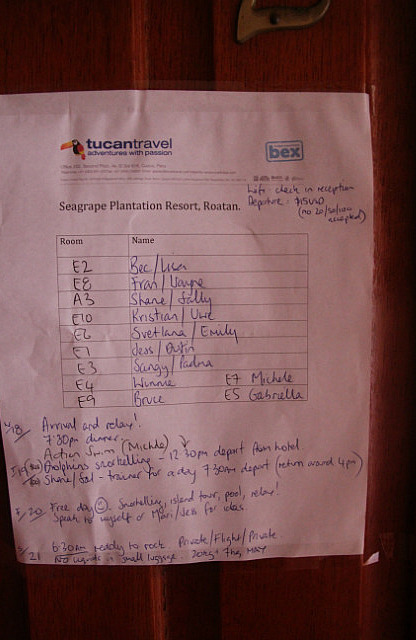 tucantravel
adventures with passion
bex
Wifi - check in reception
Departure : $15USD
(no 20/50/100
accepted)
Seagrape Plantation Resort, Roatan.
Room Name
E2 Bec/Lisa
E8 Fran/Wayne
A3 Shane/Sally
E10 Kristian/Uwe
E6 Svetlana/Emily
E1 Jess/Dustin
E3 Sangy/
E4 Winnie E7 Michele
E9 Bruce E5 Gabriella
18/ Arrival and relax!
7:30pm dinner.
Action Swim (Michele)
19 Dolphins snorkelling - 12:30pm depart from hotel
Shane/Sal - trainer for a day 7:30am depart (return around 4pm)
/20 Free day ☺. Snorkelling, island tour, pool, relax!
Speak to myself or Mari/Jess for ideas.
/21 6:30am ready to rock Private/Flight/Private.
No liquids in small luggage. 20kg + 7kg MAX